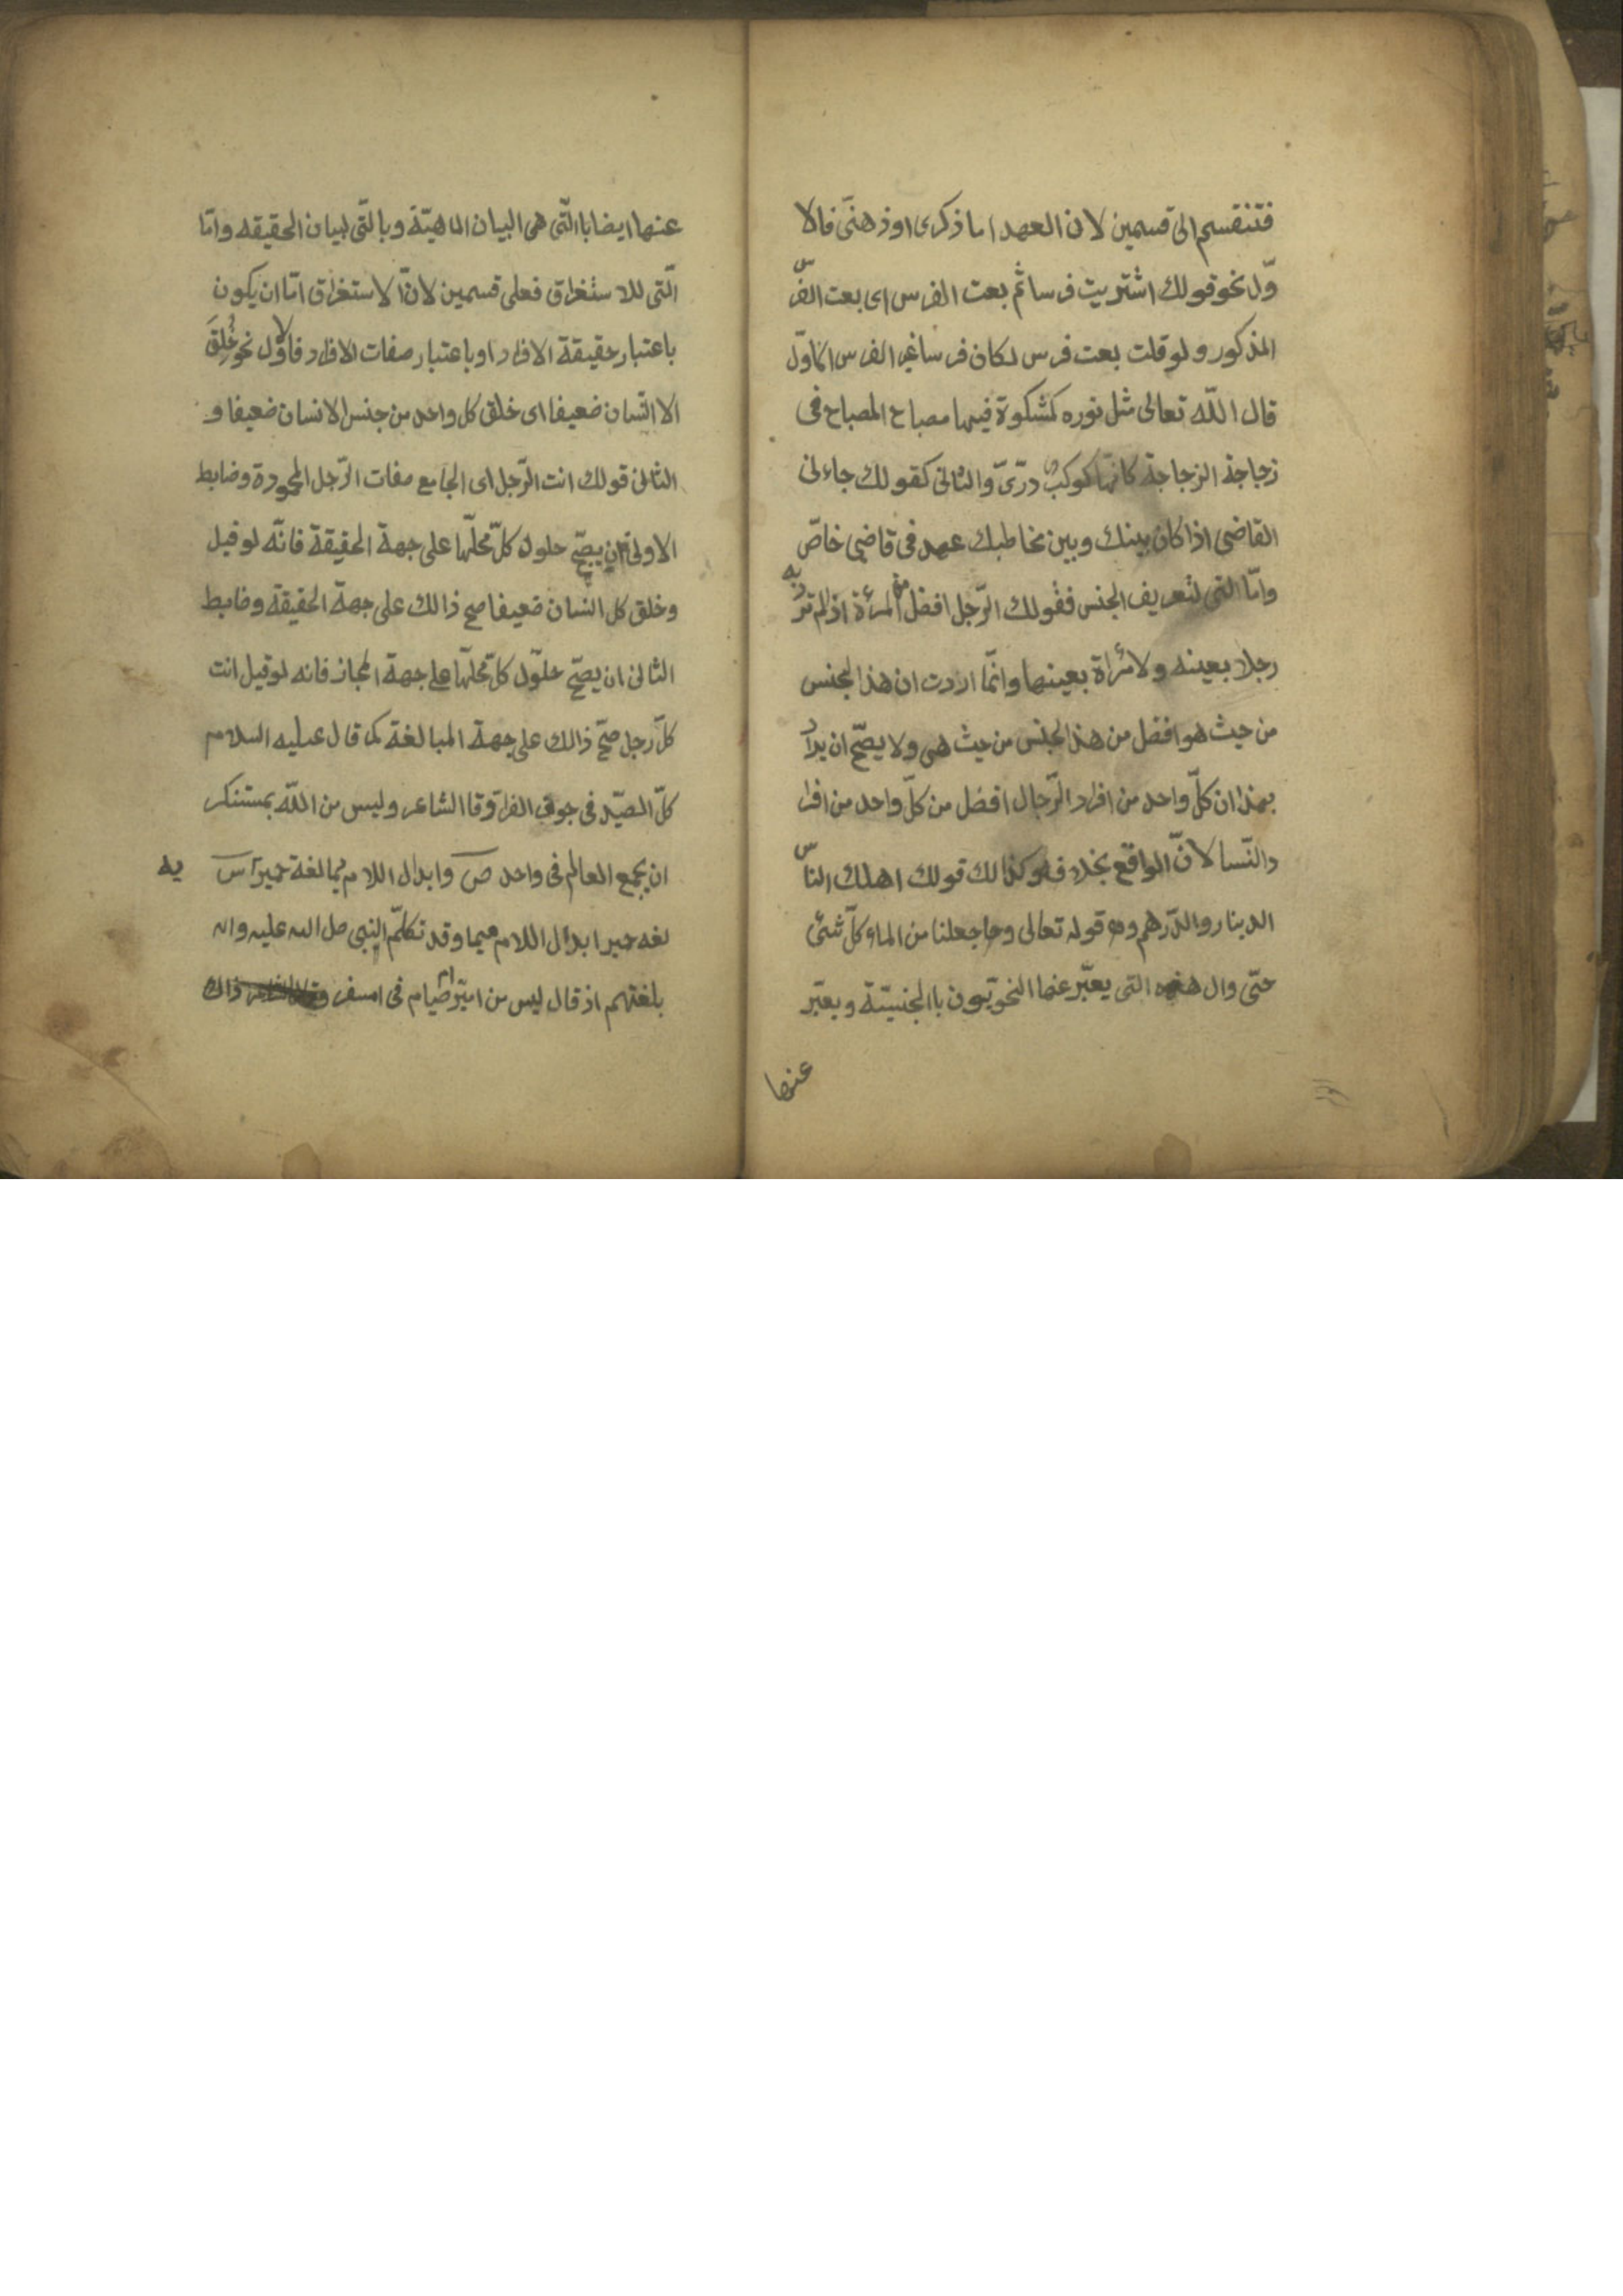 فتنقسم الى قسمين لان العهد اما ذكرى او ذهنىّ فالا
وّل نحو قولك اشتريت فرسا ثم بعت الفرس اى بعت الفرّس
المذكور ولو قلت بعت فرس لكان فرسا غير الفرس الاوّل
قال اللّه تعالى مثل نوره كمشكوة فيها مصباح المصباح فى
زجاجة الزجاجة كانّها كوكب درّىّ والثانى كقولك جاءنى
القاضى اذا كان بينك وبين مخاطبك عهد فى قاضى خاصّ
وامّا التى لتعريف الجنس فقولك الرّجل افضل من المرئة اذ لم ترد به
رجلا بعينه ولا مرأة بعينها وانّما اردت ان هذا لجنس
من حيث هو افضل من هذا لجنس من حيث هى ولا يصحّ ان يراد
بهذا ان كلّ واحد من افراد الرّجال افضل من كلّ واحد من افرا
دالنّسا لانّ الواقع بخلافه وكذالك قولك اهلك النّاس
الدينار والدّرهم وقوله تعالى وجعلنا من الماء كلّ شئ
حتّى وال هذه التى يعبّر عنها النحويّون باالجنسيّة ويعبّر
عنها
عنها ايضا باالّتى هى البيان الماهيّة وبالتّى لبيان الحقيقه وامّا
الّتى للاستغراق فعلى قسمين لانّ الاستغراق امّا ان يكون
باعتبار حقيقة الافراد او باعتبار صفات الافراد فالاوّل نحو خُلِقَ
الا انسان ضعيفا اى خلق كل واحد من جنس الانسان ضعيفا و
الثانى قولك انت الرّجل اى الجامع صفات الرّجل المحمودة وضابط
الاولى ان يصحّ حلول كلّ محلّها على جهة الحقيقة فانّه لو قيل
وخلق كل انسان ضعيفا صح ذالك على جهة الحقيقة وضابط
الثانى ان يصحّ حلّول كلّ محلّها على جهة المجاز فانه لو قيل انت
كلّ رجل صحّ ذالك على جهة المبالغة كما قال عليه السلام
كلّ الصيّد فى جوف الفرا وقا الشاعر وليس من اللّه بمستنكر
ان يجمع العالم فى واحد ص وابدال اللام ميما لغة حميرية س
لغه حمير ابدال اللام ميما وقد تكلّم النبى صل الله عليه واله
بلغتهم اذ قال ليس من امبرّ امصيام فى امسفر ذالك